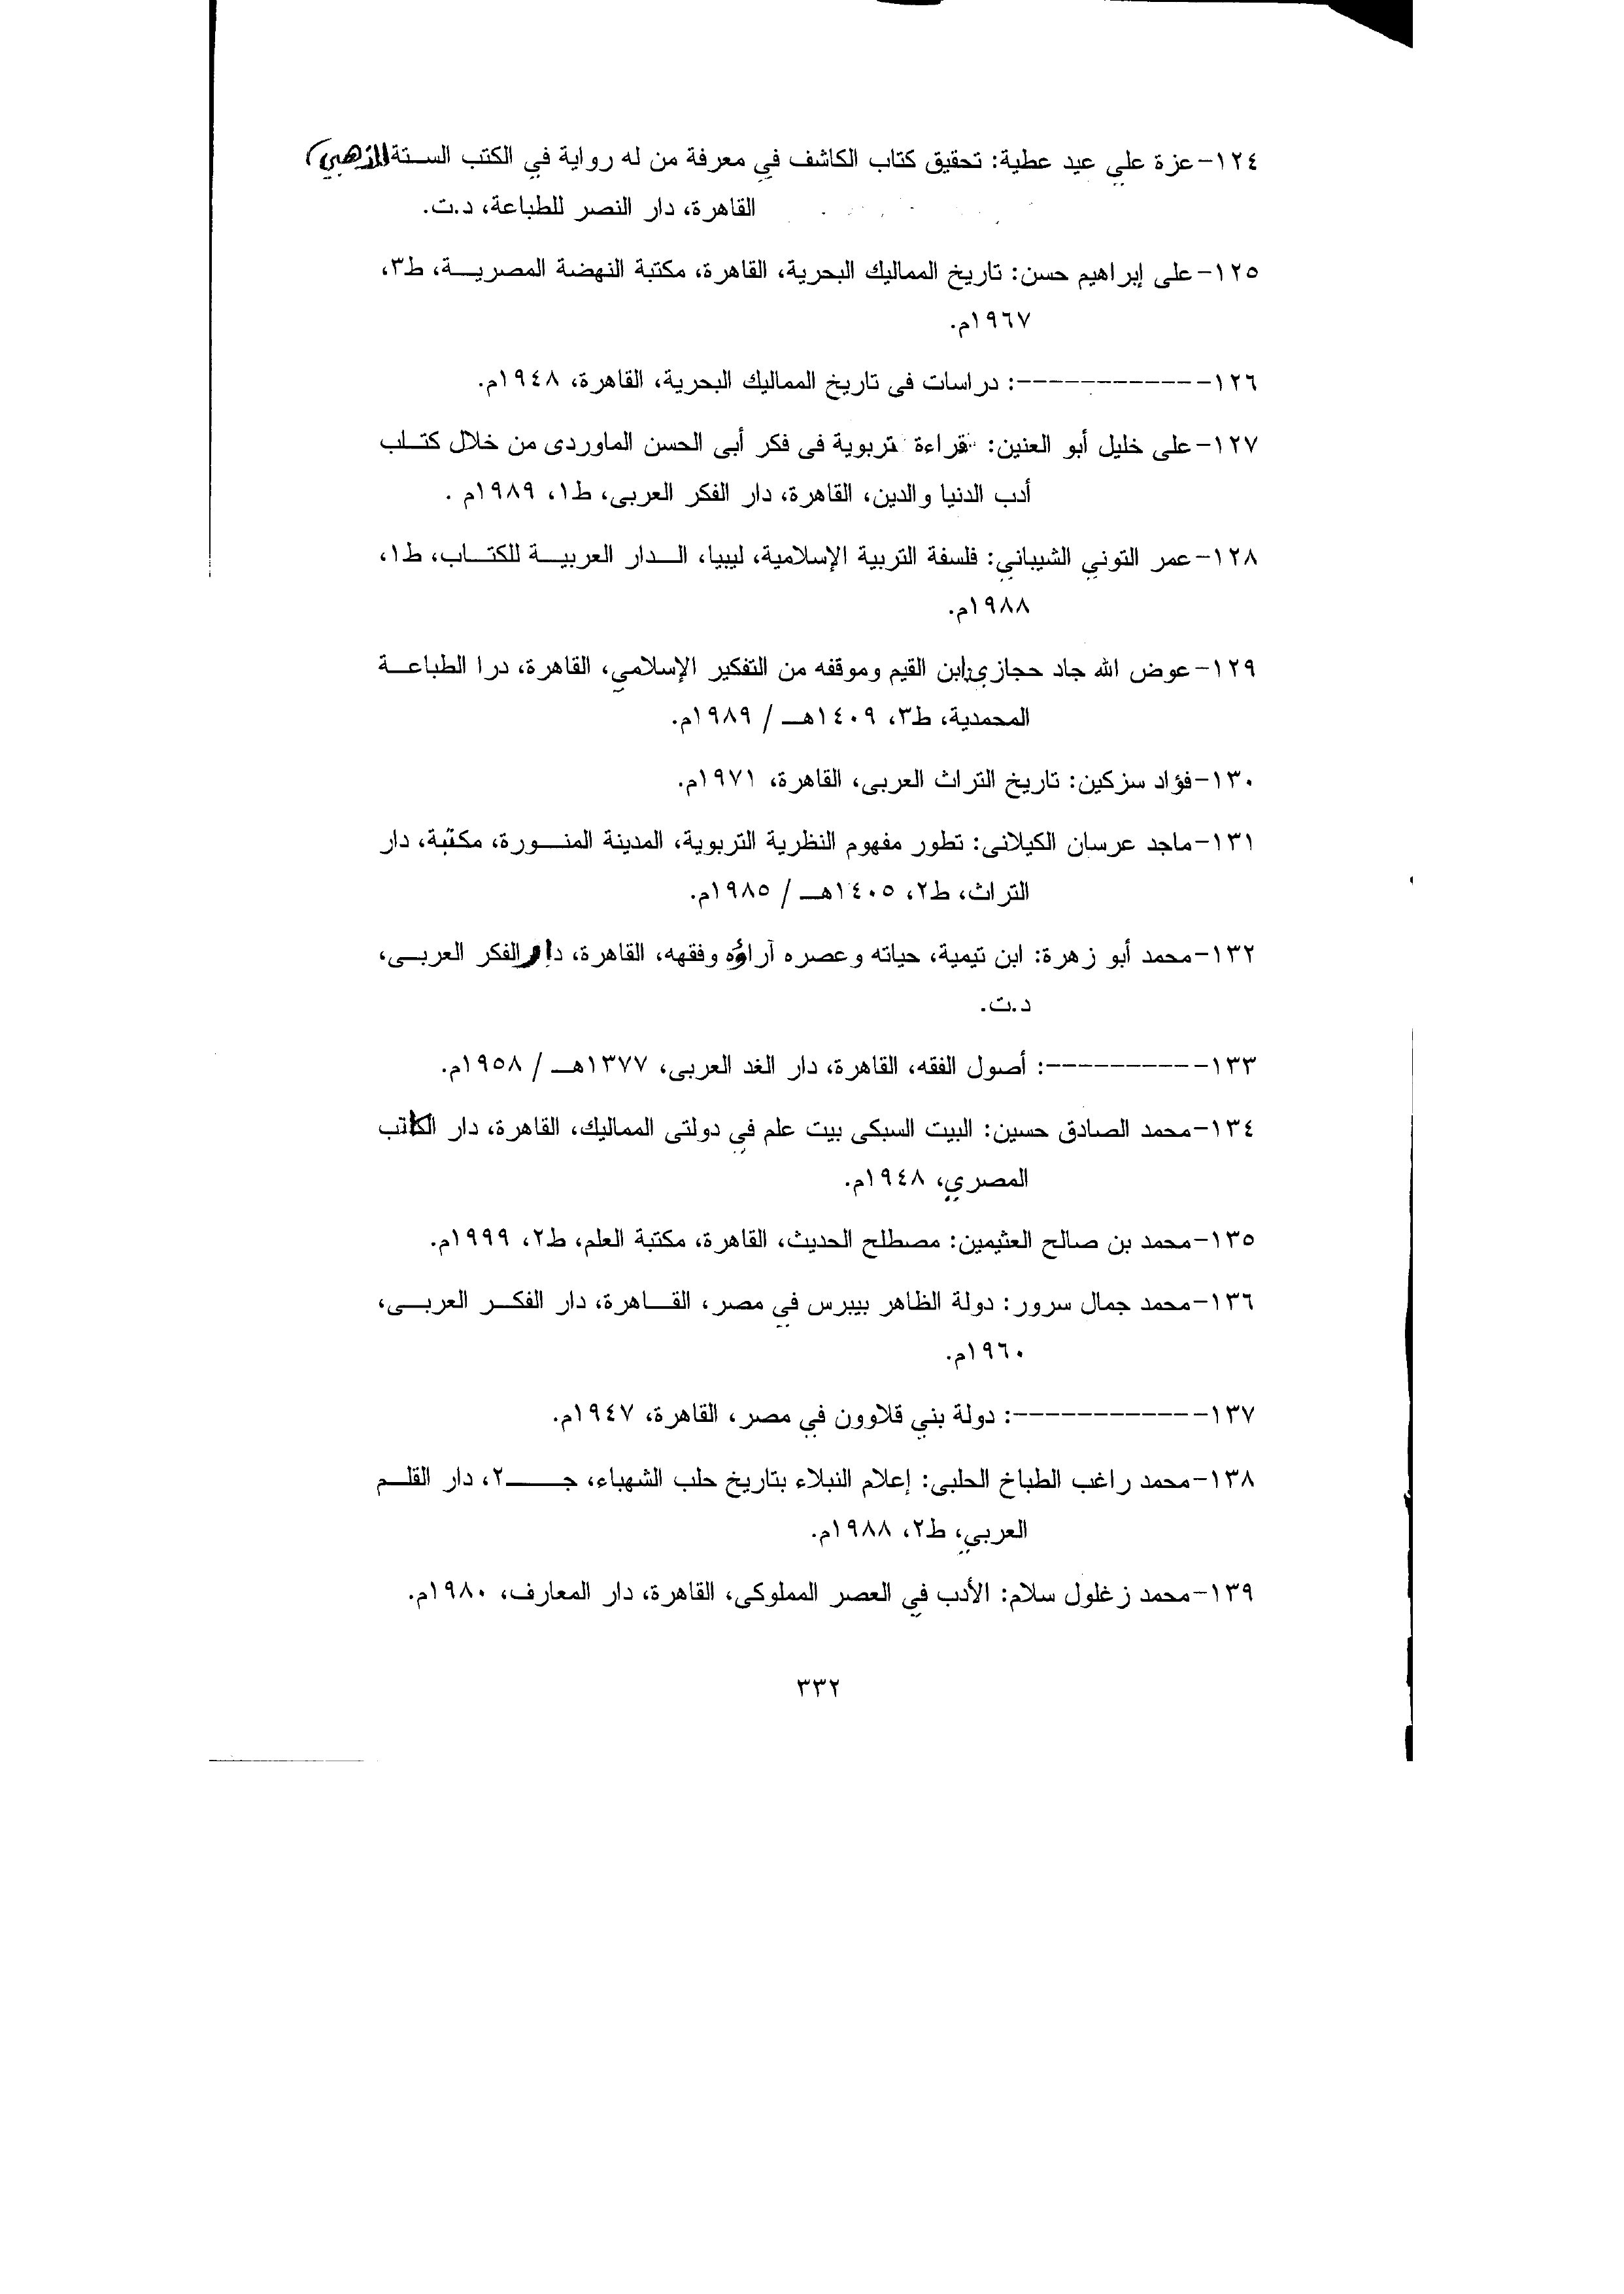 ١٢٤-عزة علي عيد عطية: تحقيق كتاب الكاشف في معرفة من له رواية في الكتب الستة (للذهبي)
القاهرة، دار النصر للطباعة، د.ت.
١٢٥-على إبراهيم حسن: تاريخ المماليك البحرية، القاهرة، مكتبة النهضة المصرية، ط٣،
١٩٦٧م.
١٢٦-------------: دراسات فى تاريخ المماليك البحرية، القاهرة، ١٩٤٨م.
١٢٧-على خليل أبو العنين: قراءة تربوية فى فكر أبى الحسن الماوردى من خلال كتلب
أدب الدنيا والدين، القاهرة، دار الفكر العربى، ط١، ١٩٨٩م .
١٢٨-عمر التوني الشيباني: فلسفة التربية الإسلامية، ليبيا، الدار العربية للكتاب، ط١،
١٩٨٨م.
١٢٩-عوض الله جاد حجازي: ابن القيم وموقفه من التفكير الإسلامي، القاهرة، درا الطباعة
المحمدية، ط٣، ١٤٠٩هـ / ١٩٨٩م.
١٣٠-فؤاد سزكين: تاريخ التراث العربى، القاهرة، ١٩٧١م.
١٣١-ماجد عرسان الكيلانى: تطور مفهوم النظرية التربوية، المدينة المنورة، مكتبة، دار
التراث، ط٢، ١٤٠٥هـ / ١٩٨٥م.
١٣٢-محمد أبو زهرة: ابن تيمية، حياته وعصره آراؤه وفقهه، القاهرة، دار الفكر العربى،
د.ت.
١٣٣-----------: أصول الفقه، القاهرة، دار الغد العربى، ١٣٧٧هـ / ١٩٥٨م.
١٣٤-محمد الصادق حسين: البيت السبكى بيت علم في دولتى المماليك، القاهرة، دار الكاتب
المصري، ١٩٤٨م.
١٣٥-محمد بن صالح العثيمين: مصطلح الحديث، القاهرة، مكتبة العلم، ط٢، ١٩٩٩م.
١٣٦-محمد جمال سرور: دولة الظاهر بيبرس في مصر، القاهرة، دار الفكر العربى،
١٩٦٠م.
١٣٧-------------: دولة بني قلاوون في مصر، القاهرة، ١٩٤٧م.
١٣٨-محمد راغب الطباخ الحلبى: إعلام النبلاء بتاريخ حلب الشهباء، جـ٢، دار القلم
العربي، ط٢، ١٩٨٨م.
١٣٩-محمد زغلول سلام: الأدب في العصر المملوكى، القاهرة، دار المعارف، ١٩٨٠م.
٣٣٢